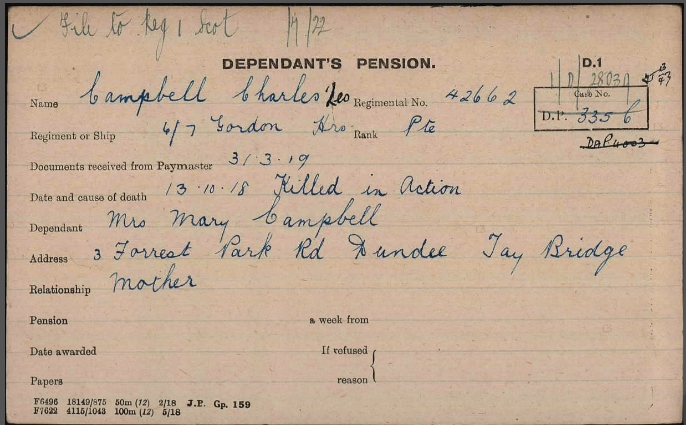 File to Reg 1 Scot 1/9/22
DEPENDANT'S PENSION.
D.1
1/D/28030
Name Campbell Charles Leo Regimental No. 42662
Case No.
D.P. 3356
DAP4003
Regiment or Ship 6/7 Gordon Hrs Rank Pte
Documents received from Paymaster 31.3.19
Date and cause of death 13.10.18 Killed in Action
Dependant Mrs Mary Campbell
Address 3 Forrest Park Rd Dundee Tay Bridge
Relationship Mother
Pension a week from
Date awarded If refused
Papers reason
F6496 18149/875 50m (12) 2/18 J.P. Gp. 159
F7622 4115/1043 100m (12) 5/18